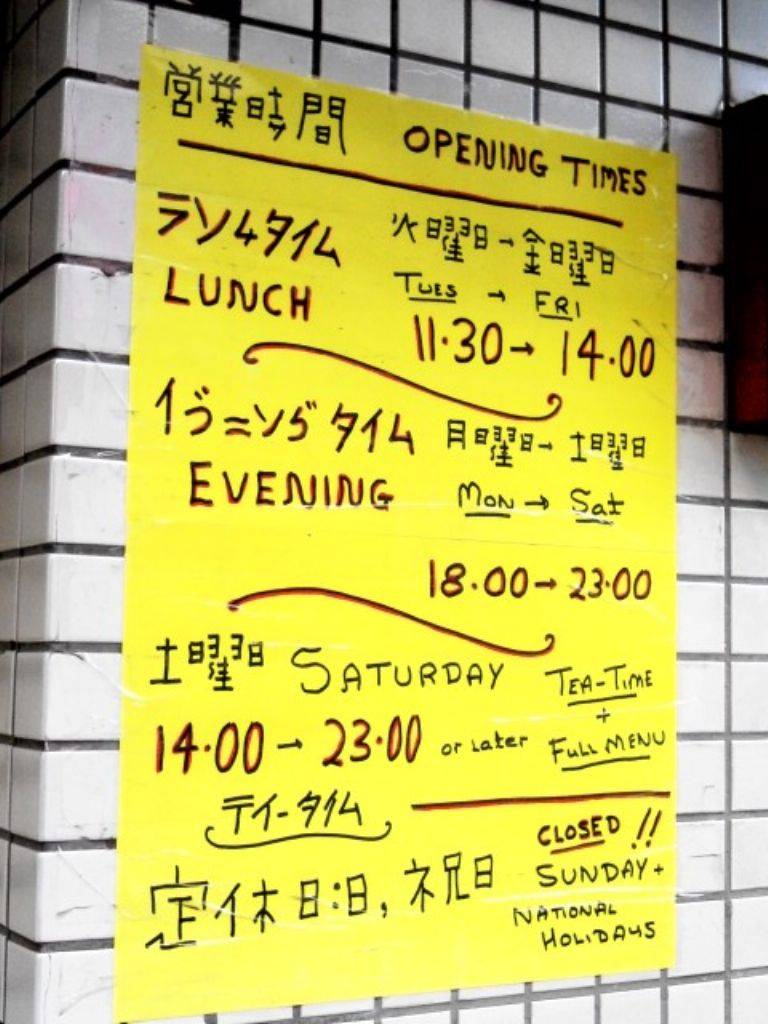 営業時間 OPENING TIMES
ランムタイム 火曜日→金曜日
LUNCH TUES → FRI
11·30→14·00
イヴニングタイム 月曜日→土曜日
EVENING MON → Sat
18·00→23·00
土曜日 SATURDAY TEA-TIME
+
14·00→23·00 or Later FULL MENU
テイータイム
CLOSED!!
定休日:日,祝日 SUNDAY+
NATIONAL
HOLIDAYS